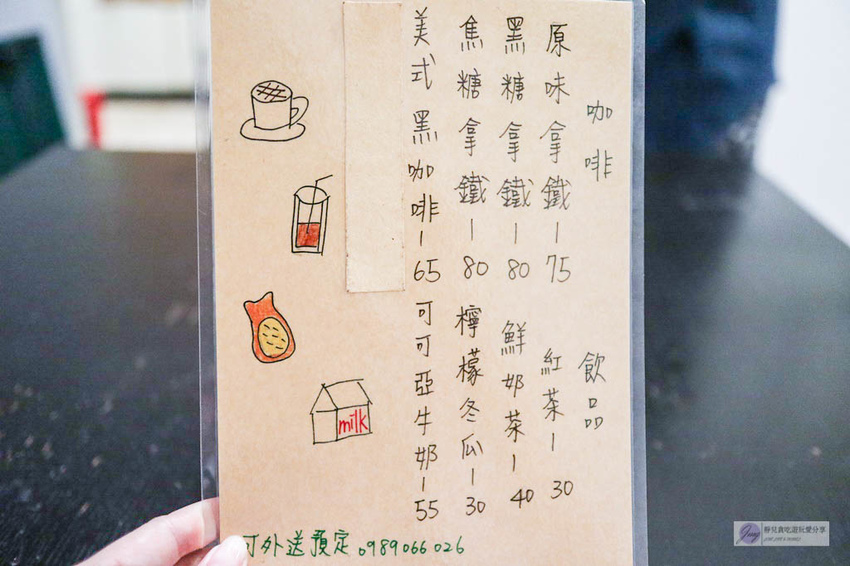 咖啡
原味拿鐵-75
黑糖拿鐵-80
焦糖拿鐵-80
美式黑咖啡-65
飲品
紅茶-30
鮮奶茶-40
檸檬冬瓜-30
可可亞牛奶-55
milk
可外送預定 0989066026
靜兒貪吃遊玩愛分享